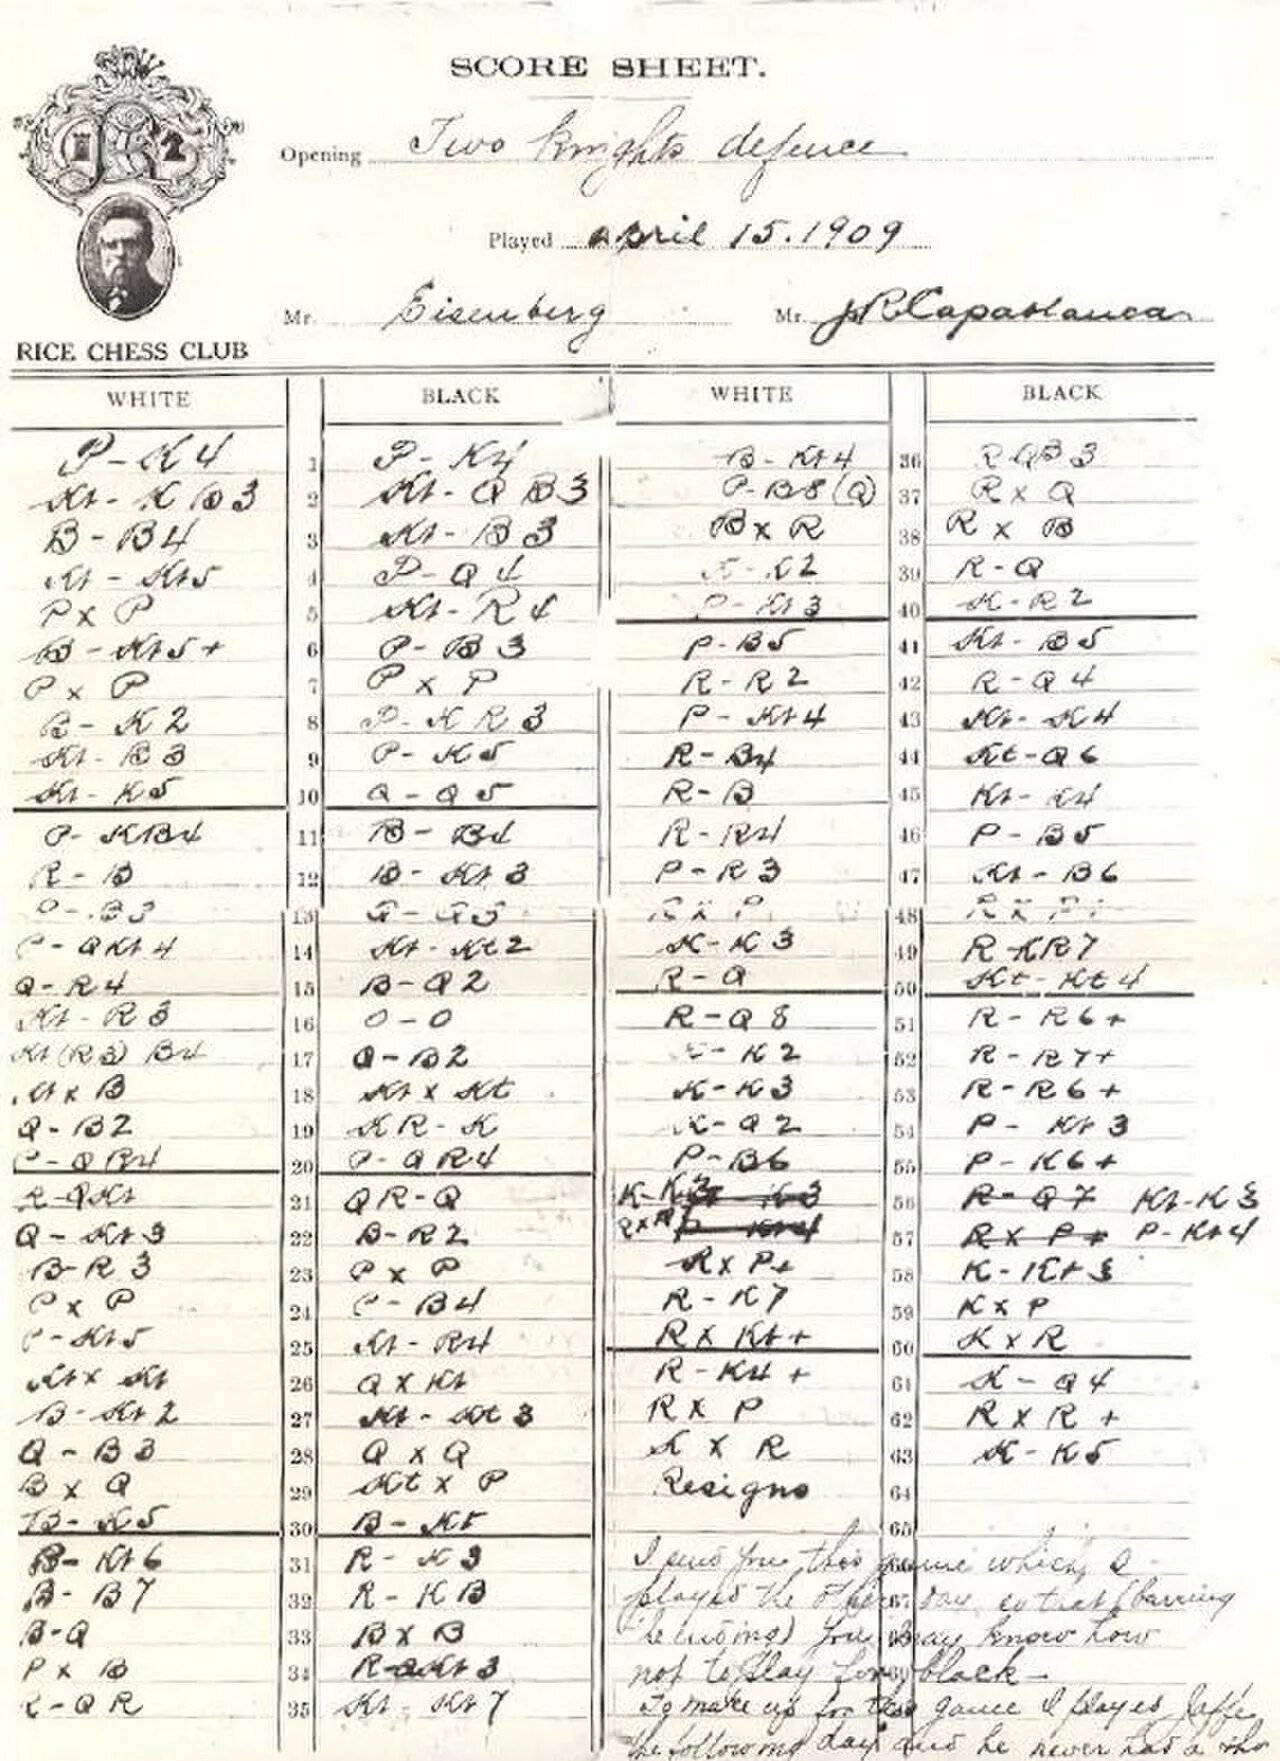 SCORE SHEET.
1 R 2
Opening Two knights defence
Played april 15. 1909
Mr. Eisenberg Mr. JRCapablanca
RICE CHESS CLUB
WHITE BLACK WHITE BLACK
P-K4 1 P-K4 B-Kt4 36 R QB3
Kt-KB3 2 Kt-QB3 P-B8(Q) 37 RxQ
B-B4 3 Kt-B3 BxR 38 RxB
Kt-Kt5 4 P-Q4 K-K2 39 R-Q
PxP 5 Kt-R4 P-Kt3 40 K-R2
B-Kt5+ 6 P-B3 P-B5 41 Kt-B5
PxP 7 PxP R-R2 42 R-Q4
B-K2 8 P-KR3 P-Kt4 43 Kt-K4
Kt-B3 9 P-K5 R-B4 44 Kt-Q6
Kt-K5 10 Q-Q5 R-B 45 Kt-K4
P-KB4 11 B-B4 R-R4 46 P-B5
R-B 12 B-Kt3 P-R3 47 Kt-B6
P-B3 13 RxP 48 RxP
P-QKt4 14 Kt-Kt2 K-K3 49 R-KR7
Q-R4 15 B-Q2 R-Q 50 Kt-Kt4
Kt-R3 16 O-O R-Q8 51 R-R6+
Kt(R3) B4 17 Q-B2 K-K2 52 R-R7+
KtxB 18 KtxKt K-K3 53 R-R6+
Q-B2 19 KR-K K-Q2 54 P-Kt3
P-QR4 20 P-QR4 P-B6 55 P-K6+
R-QKt 21 QR-Q K-K2 K3 56 R-Q7 Kt-K3
Q-Kt3 22 B-R2 RxR P-Kt4 57 RxP+ P-Kt4
B-R3 23 PxP RxP+ 58 K-Kt3
PxP 24 P-B4 R-K7 59 KxP
P-Kt5 25 Kt-R4 RxKt+ 60 KxR
KtxKt 26 QxKt R-K4+ 61 K-Q4
B-Kt2 27 Kt-Kt3 RxP 62 RxR+
Q-B3 28 QxQ KxR 63 K-K5
BxQ 29 KtxP Resigns 64
B-K5 30 B-Kt 65
B-Kt6 31 R-K3 I send you this game which I
B-B7 32 R-KB played the other day, so that (barring
B-Q 33 BxB the ending) you may know how
PxB 34 R-Kt3 not to play for black—
R-QR 35 Kt-Kt7 To make up for this game I played Jaffe
the following day and he never had a